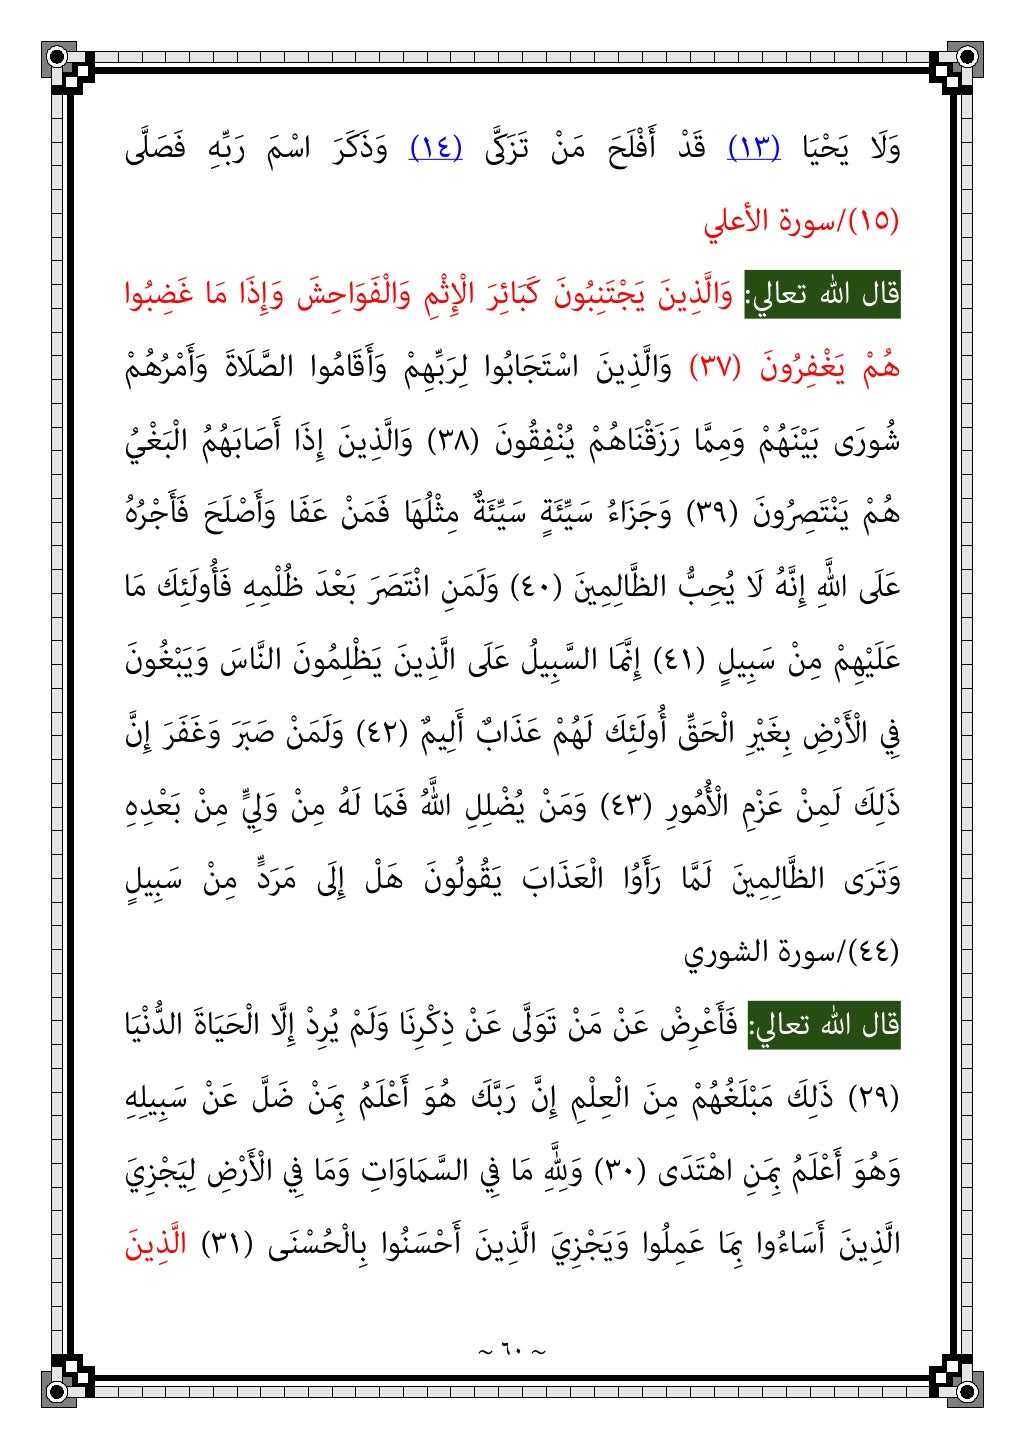 وَلَا يَحْيَا (١٣) قَدْ أَفْلَحَ مَنْ تَزَكَّى (١٤) وَذَكَرَ اسْمَ رَبِّهِ فَصَلَّى
(١٥)/سورة الأعلي
قال الله تعالي: وَالَّذِينَ يَجْتَنِبُونَ كَبَائِرَ الْإِثْمِ وَالْفَوَاحِشَ وَإِذَا مَا غَضِبُوا
هُمْ يَغْفِرُونَ (٣٧) وَالَّذِينَ اسْتَجَابُوا لِرَبِّهِمْ وَأَقَامُوا الصَّلَاةَ وَأَمْرُهُمْ
شُورَى بَيْنَهُمْ وَمِمَّا رَزَقْنَاهُمْ يُنْفِقُونَ (٣٨) وَالَّذِينَ إِذَا أَصَابَهُمُ الْبَغْيُ
هُمْ يَنْتَصِرُونَ (٣٩) وَجَزَاءُ سَيِّئَةٍ سَيِّئَةٌ مِثْلُهَا فَمَنْ عَفَا وَأَصْلَحَ فَأَجْرُهُ
عَلَى اللَّهِ إِنَّهُ لَا يُحِبُّ الظَّالِمِينَ (٤٠) وَلَمَنِ انْتَصَرَ بَعْدَ ظُلْمِهِ فَأُولَئِكَ مَا
عَلَيْهِمْ مِنْ سَبِيلٍ (٤١) إِنَّمَا السَّبِيلُ عَلَى الَّذِينَ يَظْلِمُونَ النَّاسَ وَيَبْغُونَ
فِي الْأَرْضِ بِغَيْرِ الْحَقِّ أُولَئِكَ لَهُمْ عَذَابٌ أَلِيمٌ (٤٢) وَلَمَنْ صَبَرَ وَغَفَرَ إِنَّ
ذَلِكَ لَمِنْ عَزْمِ الْأُمُورِ (٤٣) وَمَنْ يُضْلِلِ اللَّهُ فَمَا لَهُ مِنْ وَلِيٍّ مِنْ بَعْدِهِ
وَتَرَى الظَّالِمِينَ لَمَّا رَأَوُا الْعَذَابَ يَقُولُونَ هَلْ إِلَى مَرَدٍّ مِنْ سَبِيلٍ
(٤٤)/سورة الشوري
قال الله تعالي: فَأَعْرِضْ عَنْ مَنْ تَوَلَّى عَنْ ذِكْرِنَا وَلَمْ يُرِدْ إِلَّا الْحَيَاةَ الدُّنْيَا
(٢٩) ذَلِكَ مَبْلَغُهُمْ مِنَ الْعِلْمِ إِنَّ رَبَّكَ هُوَ أَعْلَمُ بِمَنْ ضَلَّ عَنْ سَبِيلِهِ
وَهُوَ أَعْلَمُ بِمَنِ اهْتَدَى (٣٠) وَلِلَّهِ مَا فِي السَّمَاوَاتِ وَمَا فِي الْأَرْضِ لِيَجْزِيَ
الَّذِينَ أَسَاءُوا بِمَا عَمِلُوا وَيَجْزِيَ الَّذِينَ أَحْسَنُوا بِالْحُسْنَى (٣١) الَّذِينَ
~ ٦٠ ~